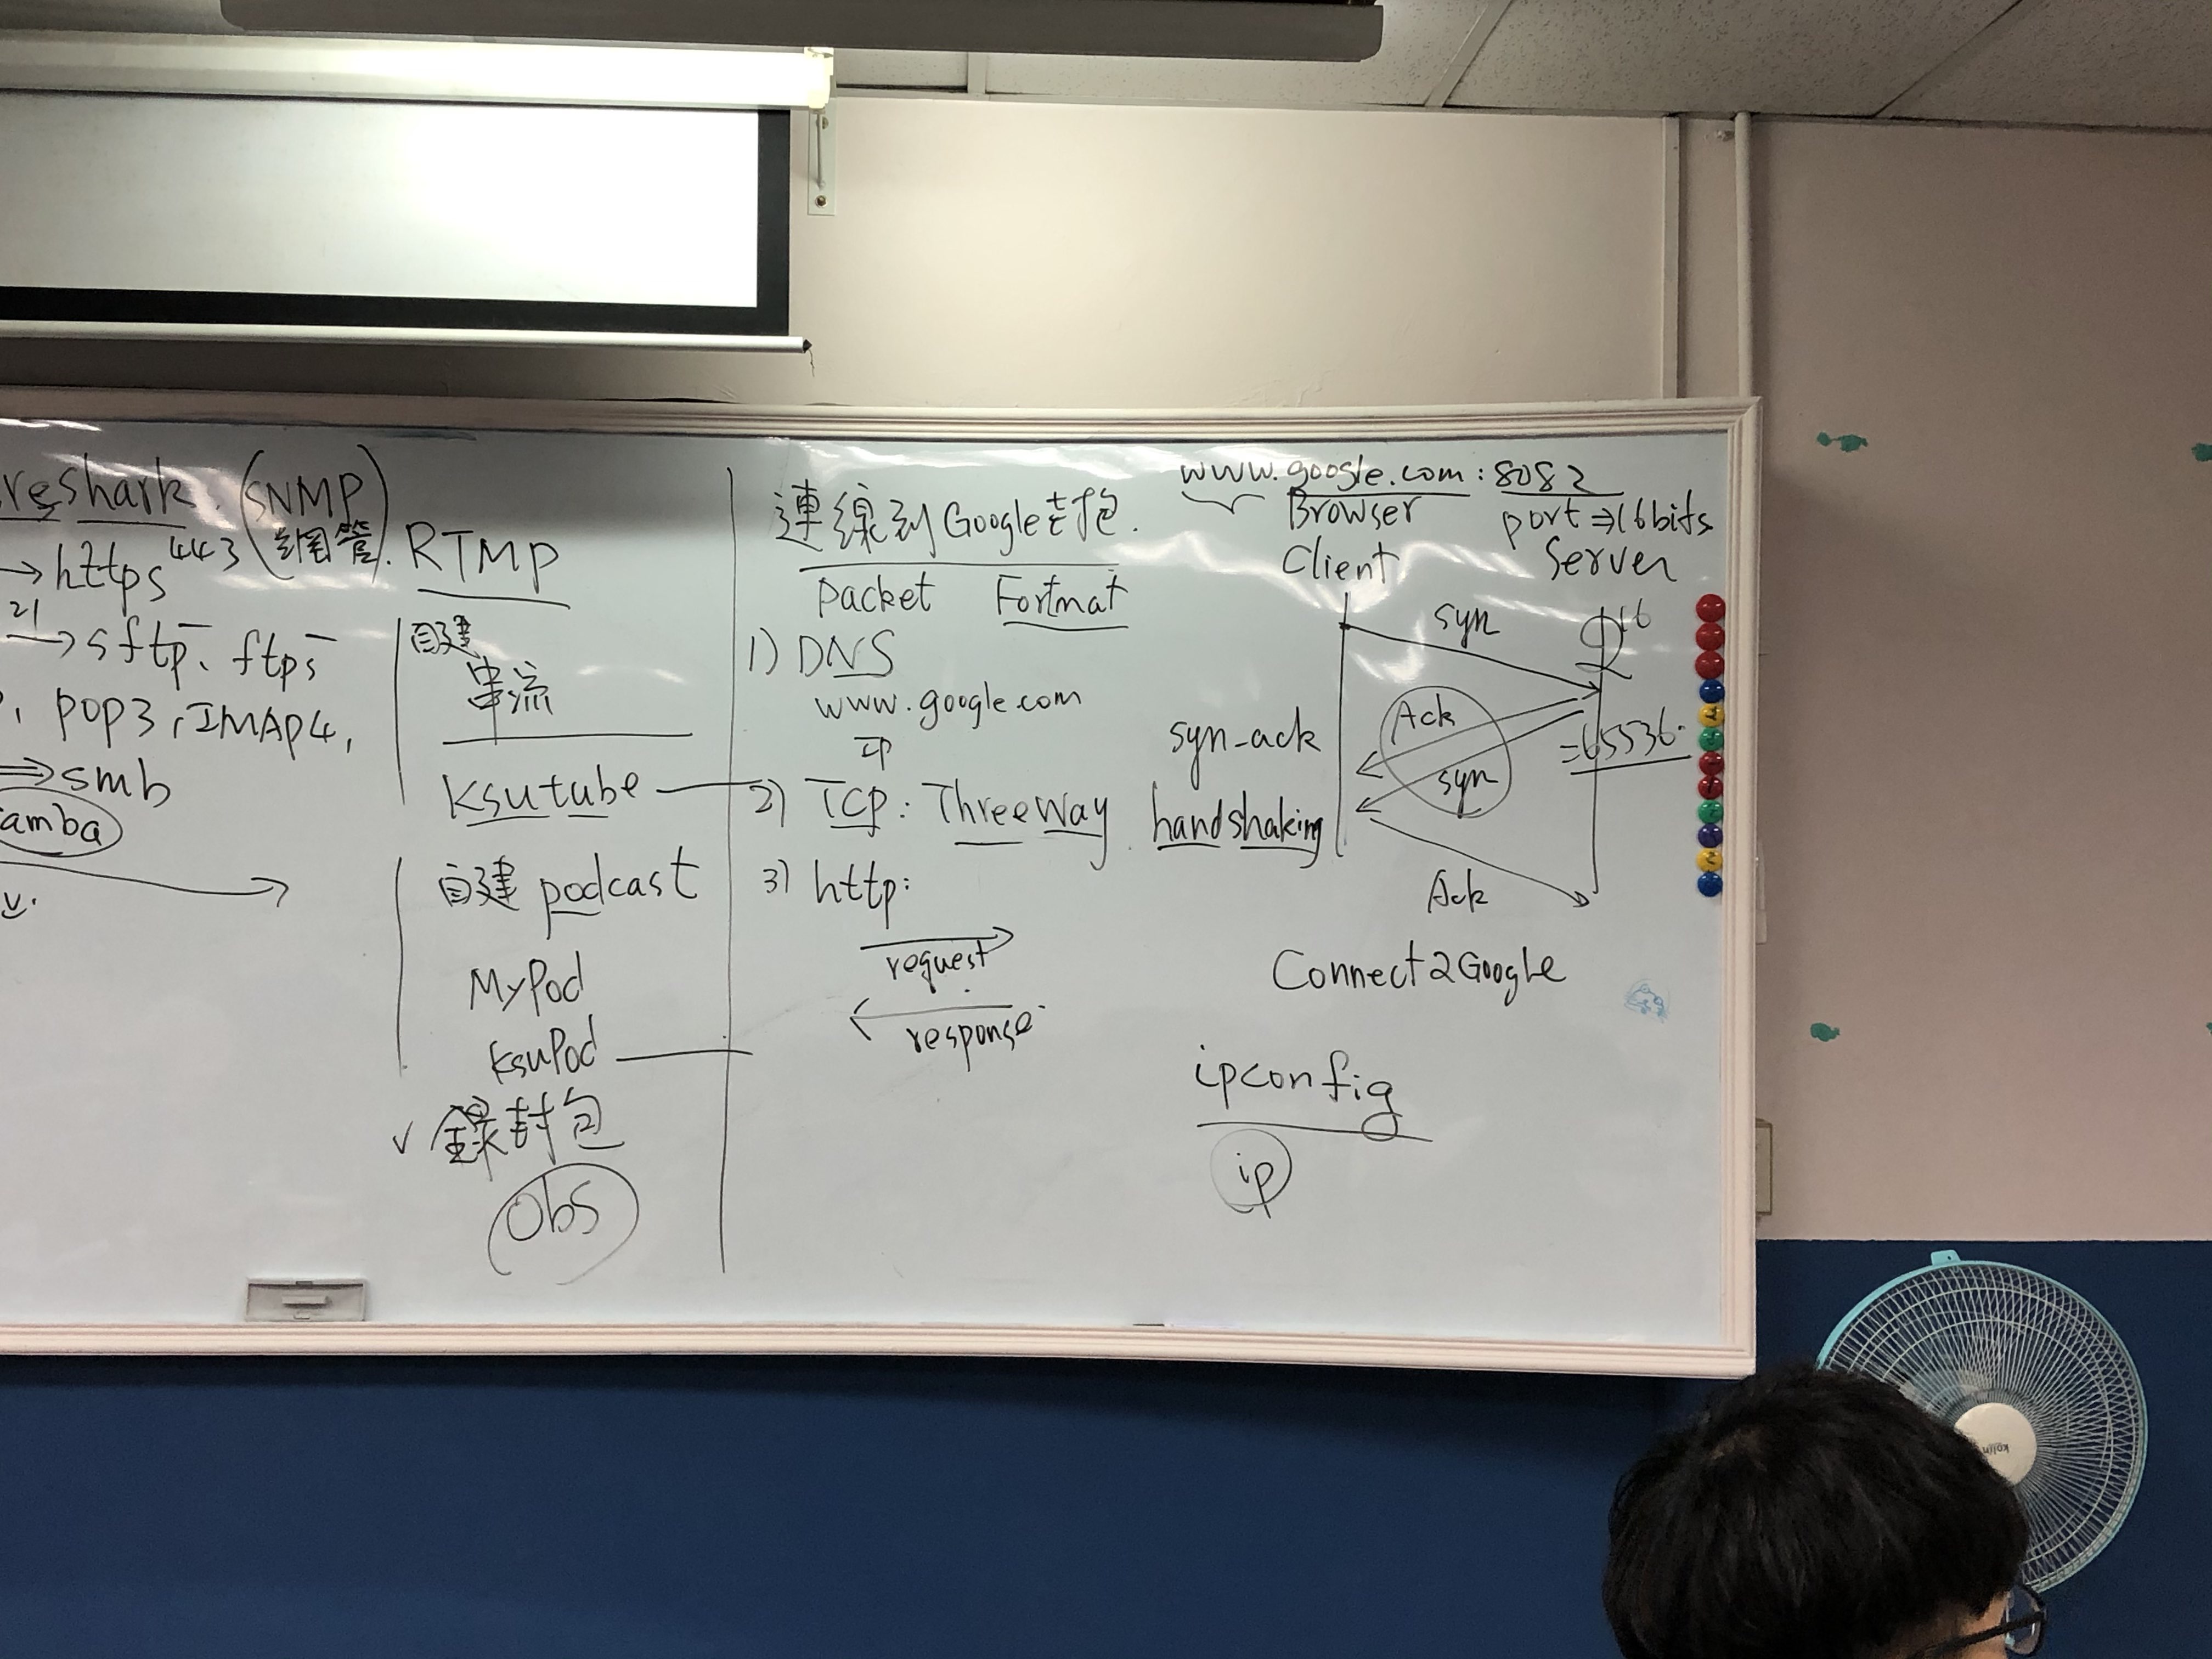 reshark. (SNMP)
網管.
→ https 443
21
→ sftp、ftps
, POP3, IMAP4,
⇒ smb
amba
v.
RTMP
自建
串流
Ksutube
自建 podcast
MyPod
KsuPod
✓ 錄封包
Obs
連線到Google封包.
Packet Fortmat
1) DNS
www.google.com
IP
2) TCP: Three Way handshaking
3) http:
request
response
www.google.com:8082
Browser
port ⇒ 16bits
Client
Server
syn
2^16
=65536.
syn-ack
Ack
syn
Ack
Connect2Google
ipconfig
ip
kolin